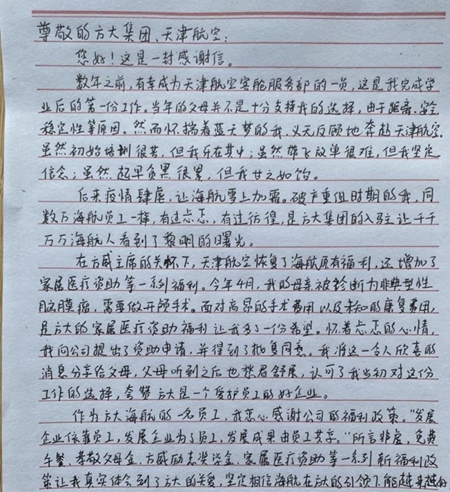 尊敬的方大集团、天津航空:
您好!这是一封感谢信。
数年之前,有幸成为天津航空客舱服务部的一员,这是我完成学
业后的第一份工作。当年的父母并不是十分支持我的选择,由于距离、安全
稳定性等原因。然而怀揣着蓝天梦的我,义无反顾地奔赴天津航空
虽然初始培训很苦,但我乐在其中;虽然带飞放单很难,但我坚定
信念;虽然起早贪黑很累,但我甘之如饴。
后来疫情肆虐,让海航雪上加霜。破产重组时期的我,同
数万海航员工一样,有过忐忑,有过彷徨,是方大集团的入主让千千
万万海航人看到了黎明的曙光。
在方威主席的关怀下,天津航空恢复了海航原有福利,还增加了
家属医疗资助等一系列福利。今年4月,我的母亲被诊断为非典型性
脑膜瘤,需要做开颅手术。面对高昂的手术费用以及未知的康复费用,
是方大的家属医疗资助福利让我多了一份希望。怀着忐忑的心情,
我向公司提出了资助申请,并得到了批复同意。我将这一令人欣喜的
消息分享给父母,父母听到之后也愁眉舒展,认可了我当初对这份
工作的选择,夸赞方大是一个爱护员工的好企业。
作为方大海航的一名员工,我衷心感谢公司的福利政策。"发展
企业依靠员工,发展企业为了员工,发展成果由员工共享。"所言非虚,免费
午餐、孝敬父母金、方威励志奖学金、家属医疗资助等一系列新福利政
策让我真实体会到了方大的关爱,坚定相信海航在方大的引领下能越来越好